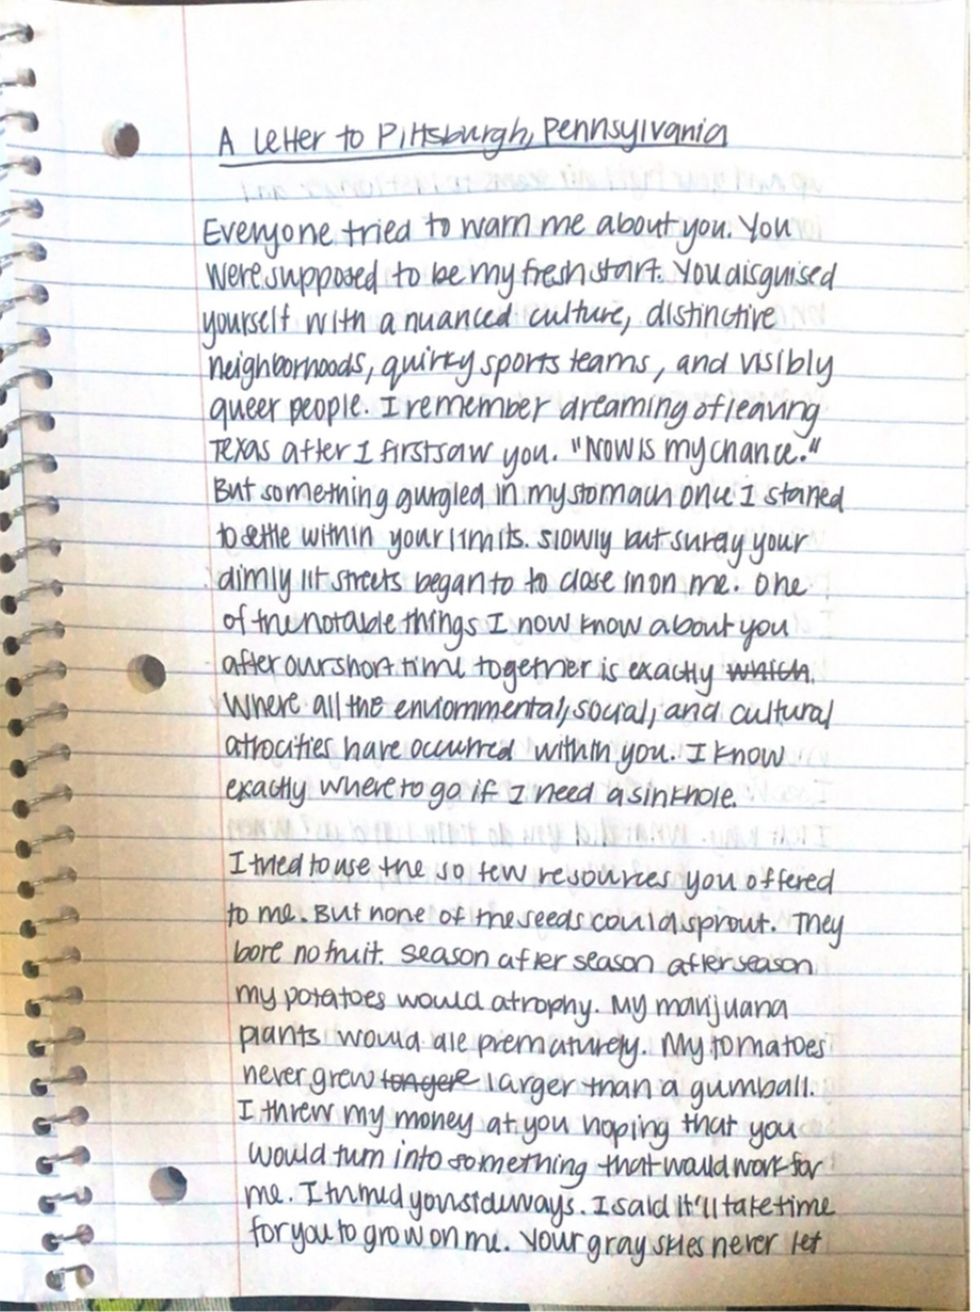 A Letter to Pittsburgh, Pennsylvania
Everyone tried to warn me about you. You
were supposed to be my fresh start. You disguised
yourself with a nuanced culture, distinctive
neighborhoods, quirky sports teams, and visibly
queer people. I remember dreaming of leaving
Texas after I first saw you. "Now is my chance."
But something gurgled in my stomach once I started
to settle within your limits. Slowly but surely your
dimly lit streets began to to close in on me. One
of the notable things I now know about you
after our short time together is exactly which
where all the enviornmental, social, and cultural
atrocities have occurred within you. I know
exactly where to go if I need a sinkhole.
I tried to use the so few resources you offered
to me. But none of the seeds could sprout. They
bore no fruit. Season after season after season
my potatoes would atrophy. My marijuana
plants would die prematurely. My tomatoes
never grew larger than a gumball.
I threw my money at you hoping that you
would turn into something that would work for
me. I turned you sideways. I said it'll take time
for you to grow on me. Your gray skies never let